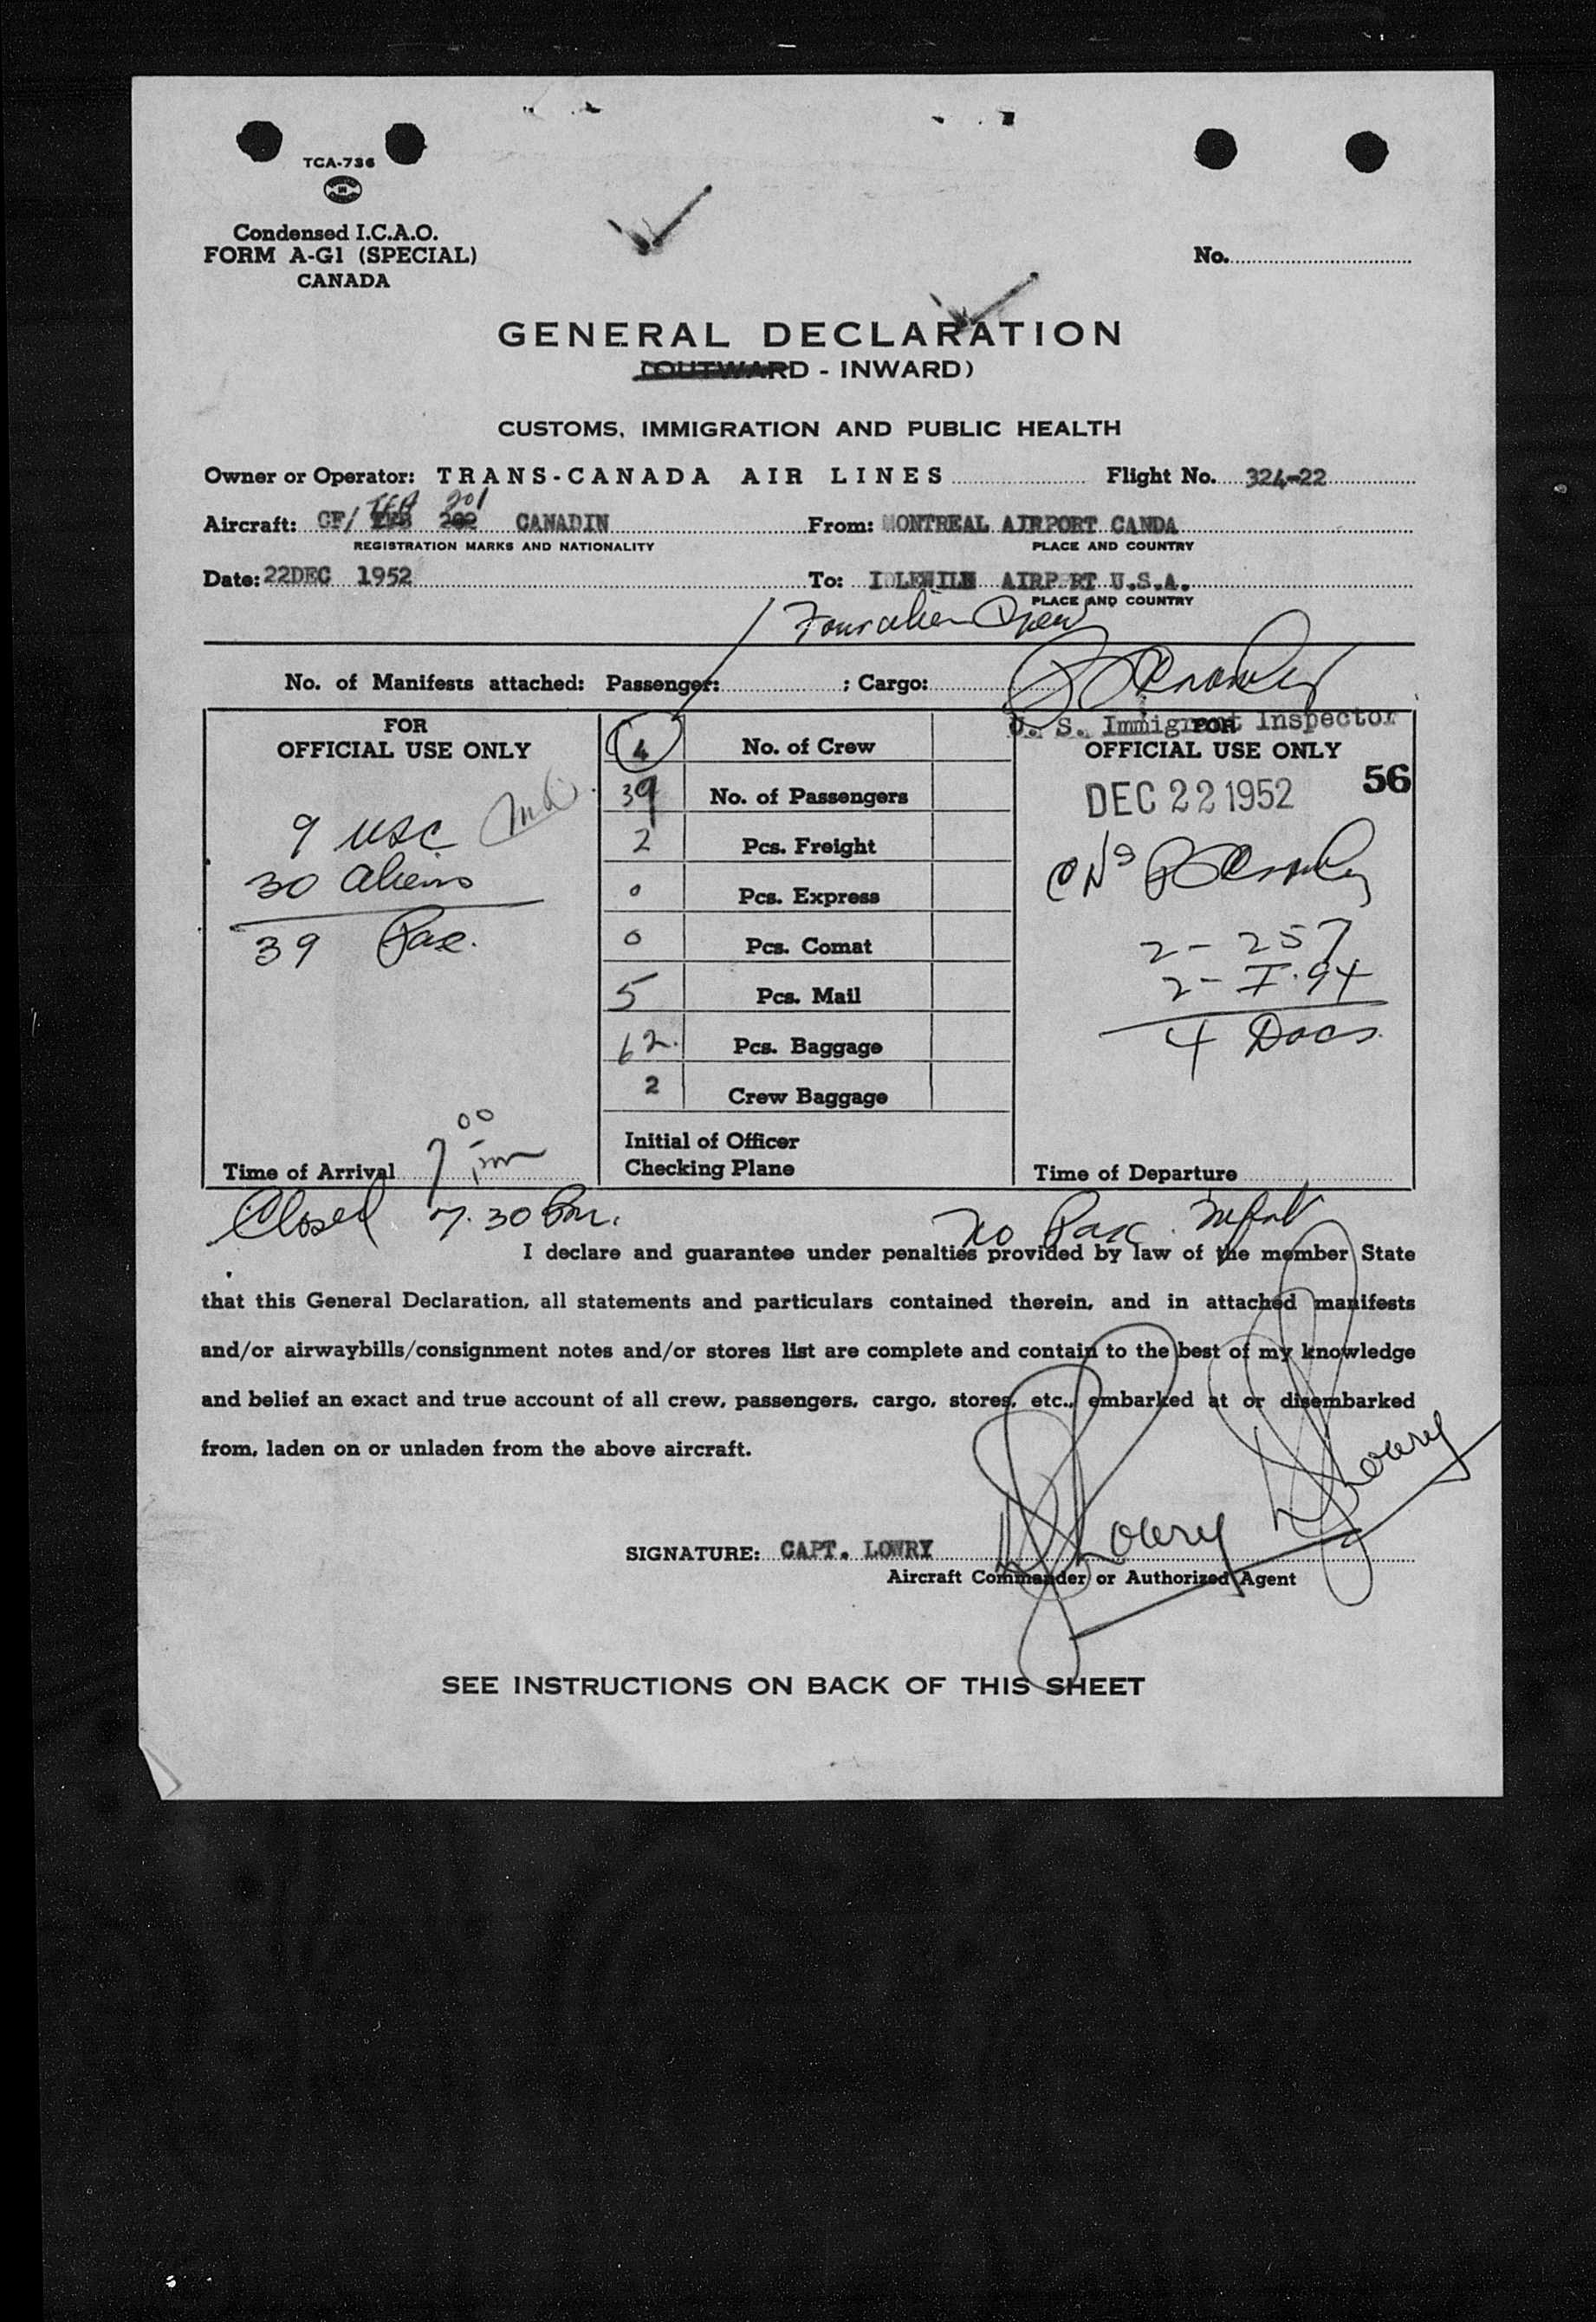 TCA-736
Condensed I.C.A.O.
FORM A-G1 (SPECIAL)
CANADA
No.
GENERAL DECLARATION
(OUTWARD - INWARD)
CUSTOMS, IMMIGRATION AND PUBLIC HEALTH
Owner or Operator: TRANS-CANADA AIR LINES Flight No. 324-22
TFA 201
Aircraft: CF/ 202 CANADIN From: MONTREAL AIRPORT CANDA
REGISTRATION MARKS AND NATIONALITY PLACE AND COUNTRY
Date: 22DEC 1952 To: IDLEWILD AIRPORT U.S.A.
PLACE AND COUNTRY
Four alien Crew
No. of Manifests attached: Passenger: ; Cargo:
U. S. Immigrant Inspector
FOR
OFFICIAL USE ONLY
9 USC
30 Aliens
39 Pax.
7 00 pm
Time of Arrival
4 No. of Crew
39 No. of Passengers
2 Pcs. Freight
0 Pcs. Express
0 Pcs. Comat
5 Pcs. Mail
62. Pcs. Baggage
2 Crew Baggage
Initial of Officer
Checking Plane
FOR
OFFICIAL USE ONLY
56
DEC 22 1952
2 - 257
2 - I-94
4 Docs.
Time of Departure
Closed 7.30 Pm. No Pax.
I declare and guarantee under penalties provided by law of the member State
that this General Declaration, all statements and particulars contained therein, and in attached manifests
and/or airwaybills/consignment notes and/or stores list are complete and contain to the best of my knowledge
and belief an exact and true account of all crew, passengers, cargo, stores, etc., embarked at or disembarked
from, laden on or unladen from the above aircraft.
Lowry
SIGNATURE: CAPT. LOWRY Lowry
Aircraft Commander or Authorized Agent
SEE INSTRUCTIONS ON BACK OF THIS SHEET